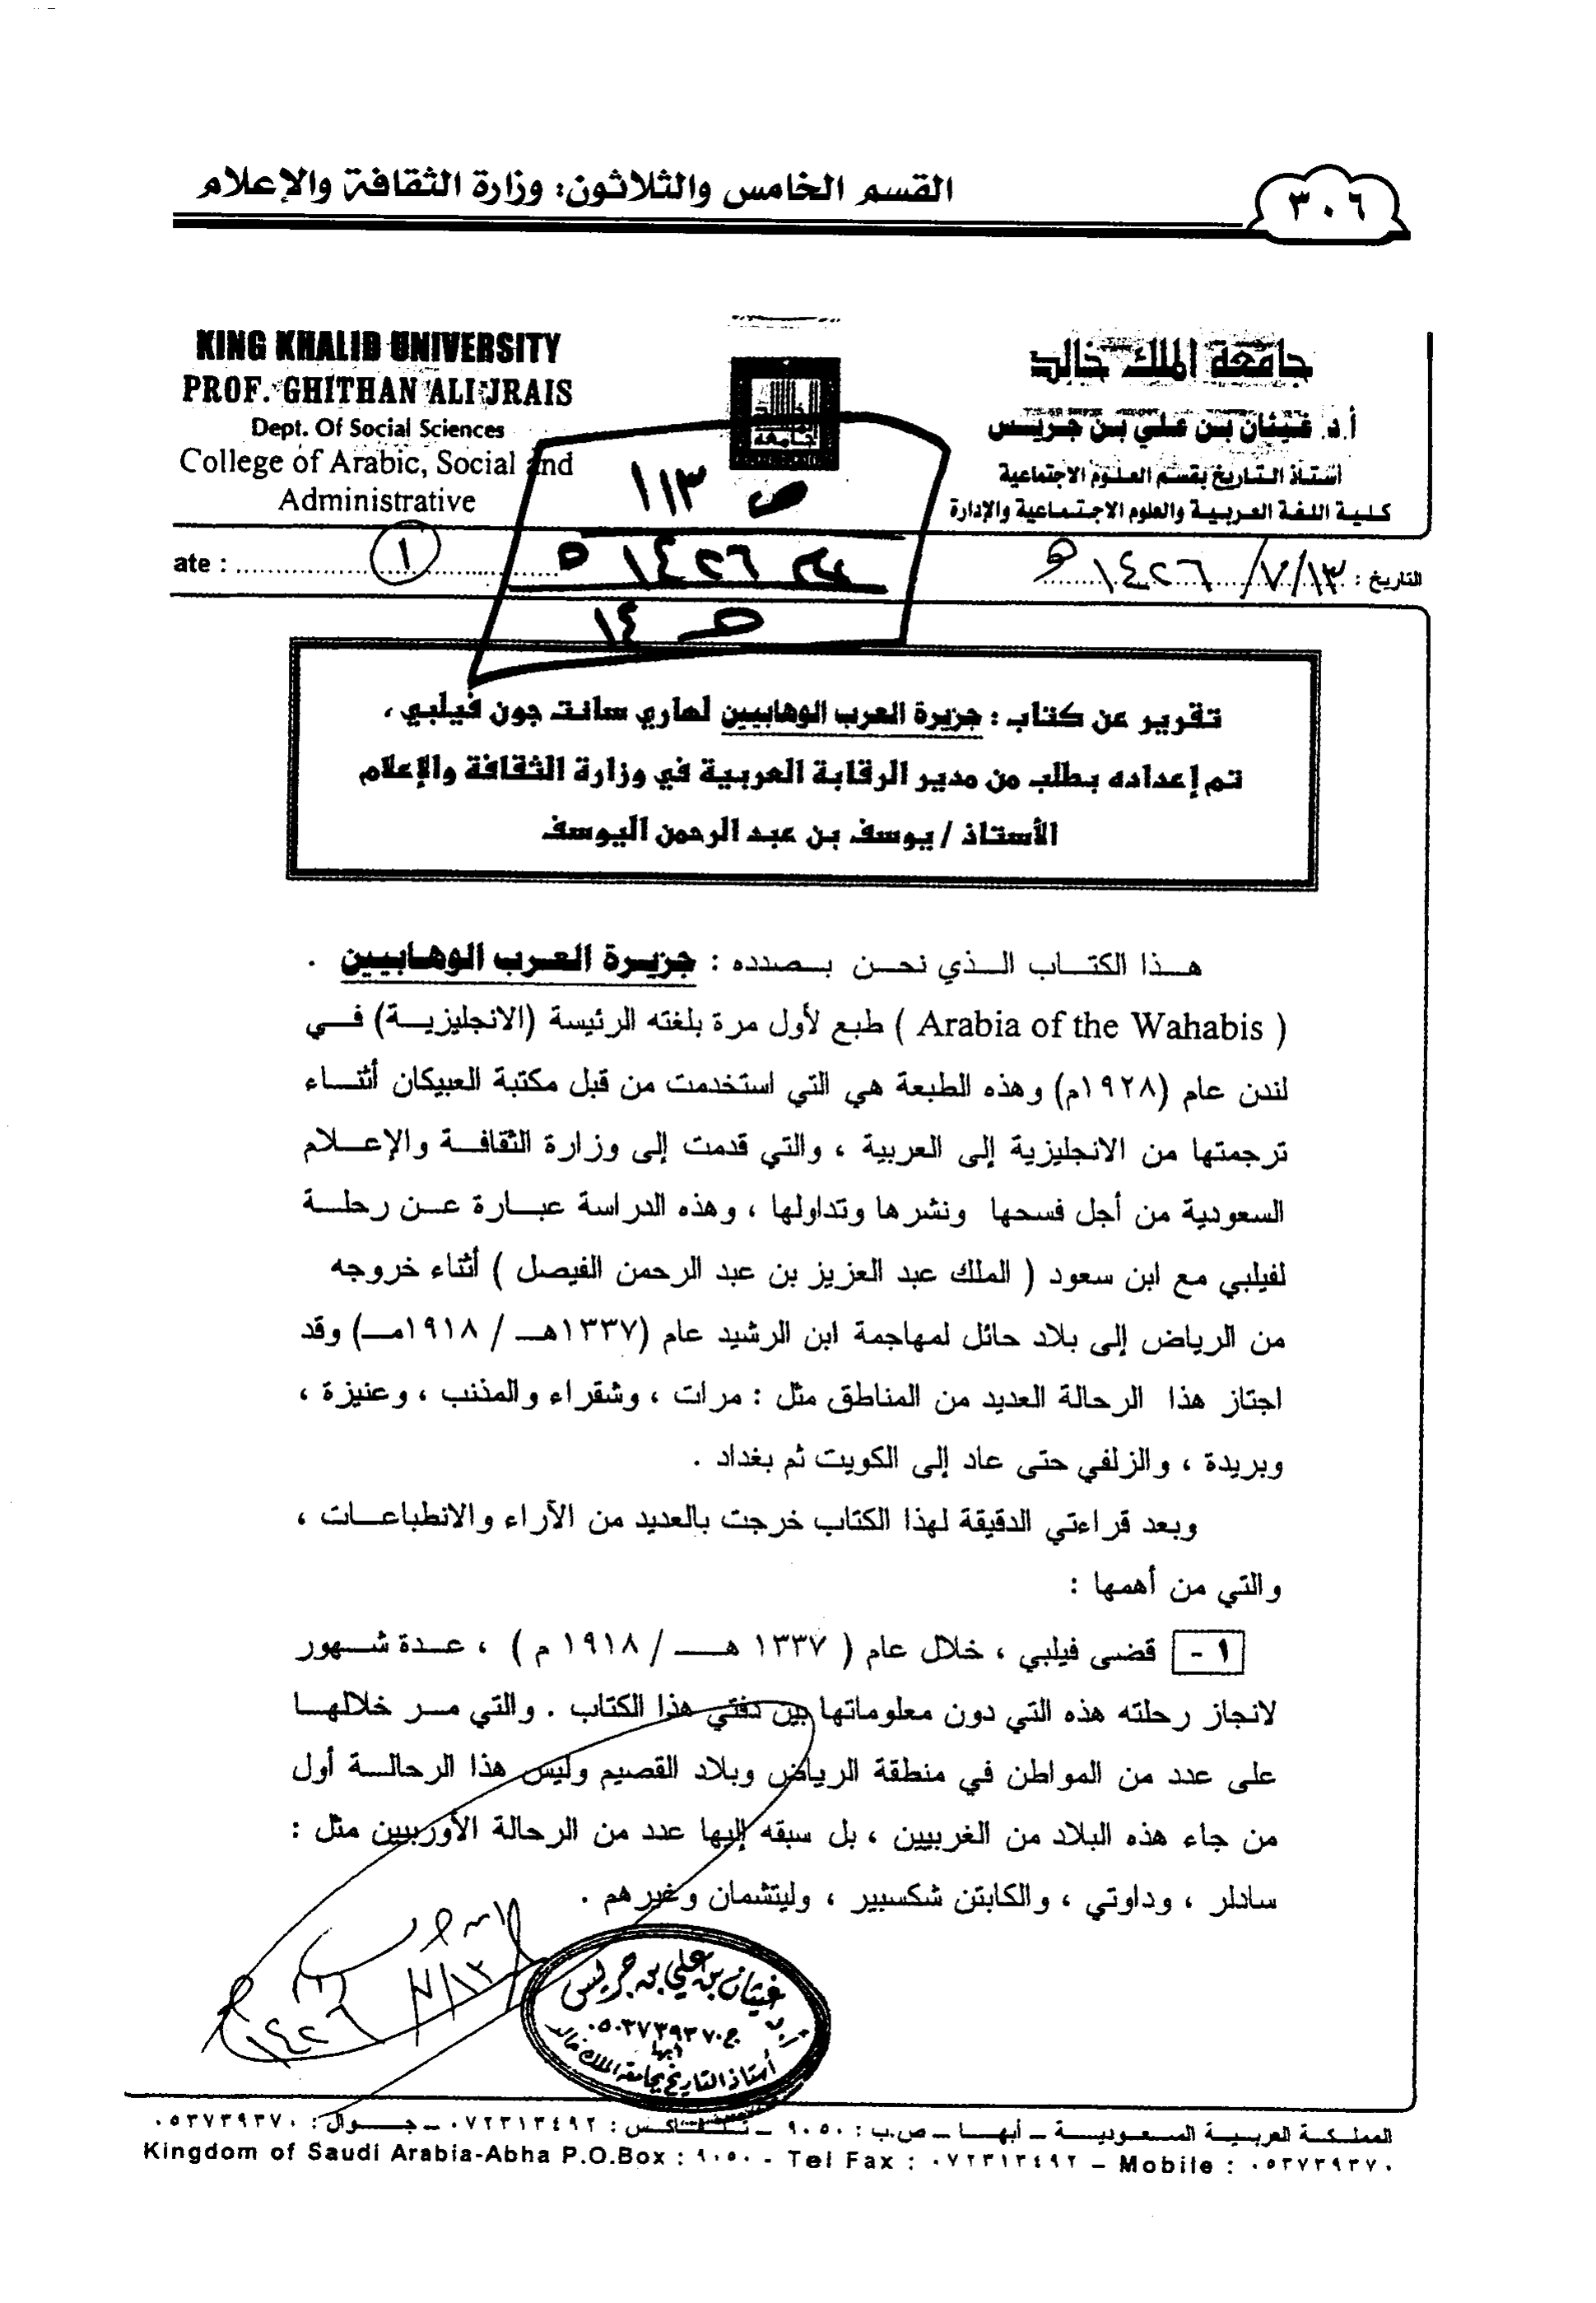 ٣٠٦
القسم الخامس والثلاثون: وزارة الثقافة والإعلام
KING KHALID UNIVERSITY
PROF. GHITHAN ALI JRAIS
Dept. Of Social Sciences
College of Arabic, Social and
Administrative
جامعة الملك خالد
أ.د. غيثان بن علي بن جريس
أستاذ التاريخ بقسم العلوم الاجتماعية
كلية اللغة العربية والعلوم الاجتماعية والإدارة
ص ١١٣
١٤٢٦ ه
١٤
ate : .......... ١ ..........
التاريخ : ١٣/٧/١٤٢٦ هـ
تقرير عن كتاب : جزيرة العرب الوهابيين لهاري سانت جون فيلبي ،
تم إعداده بطلب من مدير الرقابة العربية في وزارة الثقافة والإعلام
الأستاذ / يوسف بن عبد الرحمن اليوسف
هذا الكتاب الذي نحن بصدده : جزيرة العرب الوهابيين .
( Arabia of the Wahabis ) طبع لأول مرة بلغته الرئيسة (الانجليزية) في
لندن عام (١٩٢٨م) وهذه الطبعة هي التي استخدمت من قبل مكتبة العبيكان أثناء
ترجمتها من الانجليزية إلى العربية ، والتي قدمت إلى وزارة الثقافة والإعلام
السعودية من أجل فسحها ونشرها وتداولها ، وهذه الدراسة عبارة عن رحلة
لفيلبي مع ابن سعود ( الملك عبد العزيز بن عبد الرحمن الفيصل ) أثناء خروجه
من الرياض إلى بلاد حائل لمهاجمة ابن الرشيد عام (١٣٣٧هـ / ١٩١٨مـ) وقد
اجتاز هذا الرحالة العديد من المناطق مثل : مرات ، وشقراء والمذنب ، وعنيزة ،
وبريدة ، والزلفي حتى عاد إلى الكويت ثم بغداد .
وبعد قراءتي الدقيقة لهذا الكتاب خرجت بالعديد من الآراء والانطباعات ،
والتي من أهمها :
١ - قضى فيلبي ، خلال عام ( ١٣٣٧ هـ / ١٩١٨ م ) ، عدة شهور
لانجاز رحلته هذه التي دون معلوماتها بين دفتي هذا الكتاب . والتي مر خلالها
على عدد من المواطن في منطقة الرياض وبلاد القصيم وليس هذا الرحالة أول
من جاء هذه البلاد من الغربيين ، بل سبقه إليها عدد من الرحالة الأوربيين مثل :
سادلر ، وداوتي ، والكابتن شكسبير ، وليتشمان وغيرهم .
١٣/٧
١٤٢٦
غيثان بن علي بن جريس
ج ٠٥٠٣٧٣٩٣٧٠
أبها
أستاذ التاريخ بجامعة الملك خالد
المملكة العربية السعودية – أبها – ص.ب : ٩٠٥٠ – تلفاكس : ٠٧٢٣١٣٤٩٢ – جوال : ٠٥٣٧٣٩٣٧٠
Kingdom of Saudi Arabia-Abha P.O.Box : ٩٠٥٠ - Tel Fax : ٠٧٢٣١٣٤٩٢ – Mobile : ٠٥٣٧٣٩٣٧٠